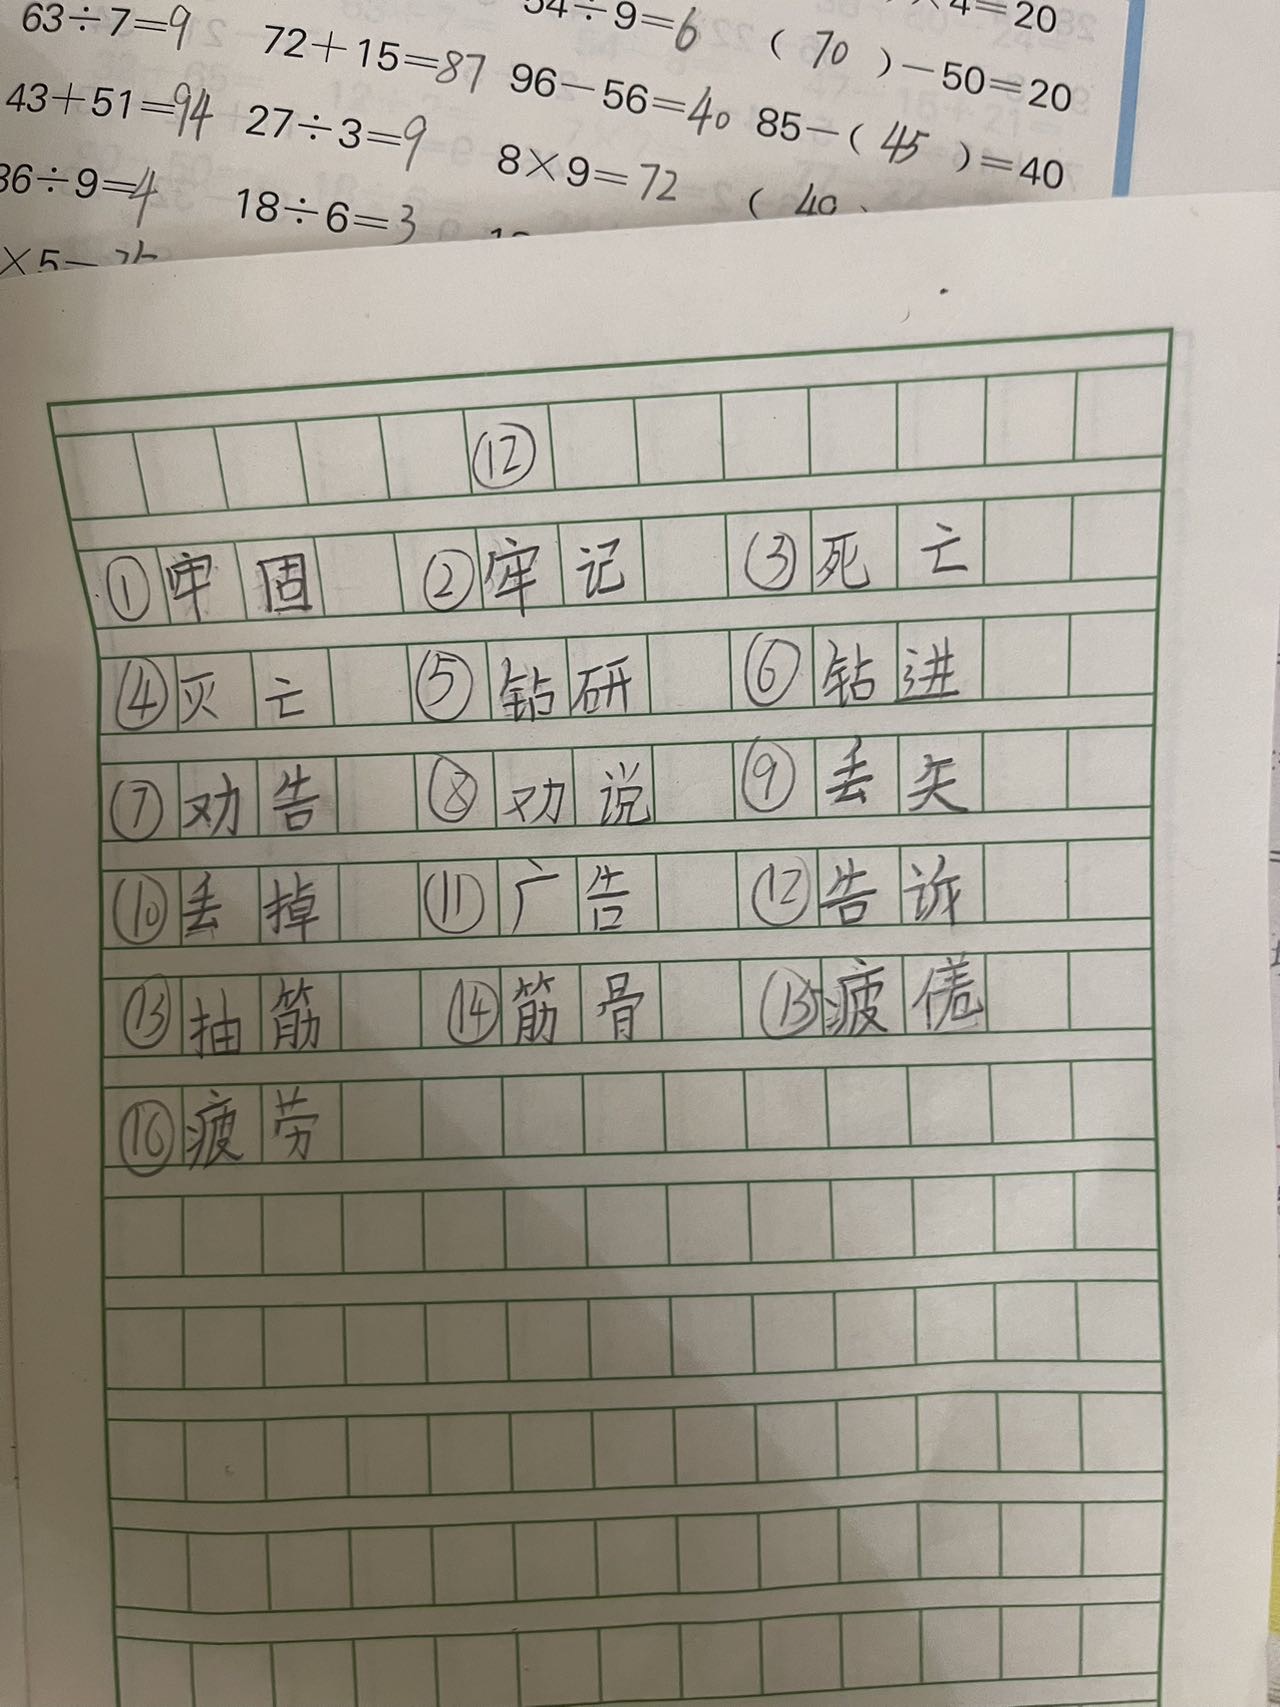 63÷7=9 72+15=87 54÷9=6 ×4=20
43+51=94 27÷3=9 96-56=40 (70)-50=20
36÷9=4 18÷6=3 8×9=72 85-(45)=40
×5= (40
⑫
①牢固 ②牢记 ③死亡
④灭亡 ⑤钻研 ⑥钻进
⑦劝告 ⑧劝说 ⑨丢矢
⑩丢掉 ⑪广告 ⑫告诉
⑬抽筋 ⑭筋骨 ⑮疲倦
⑯疲劳